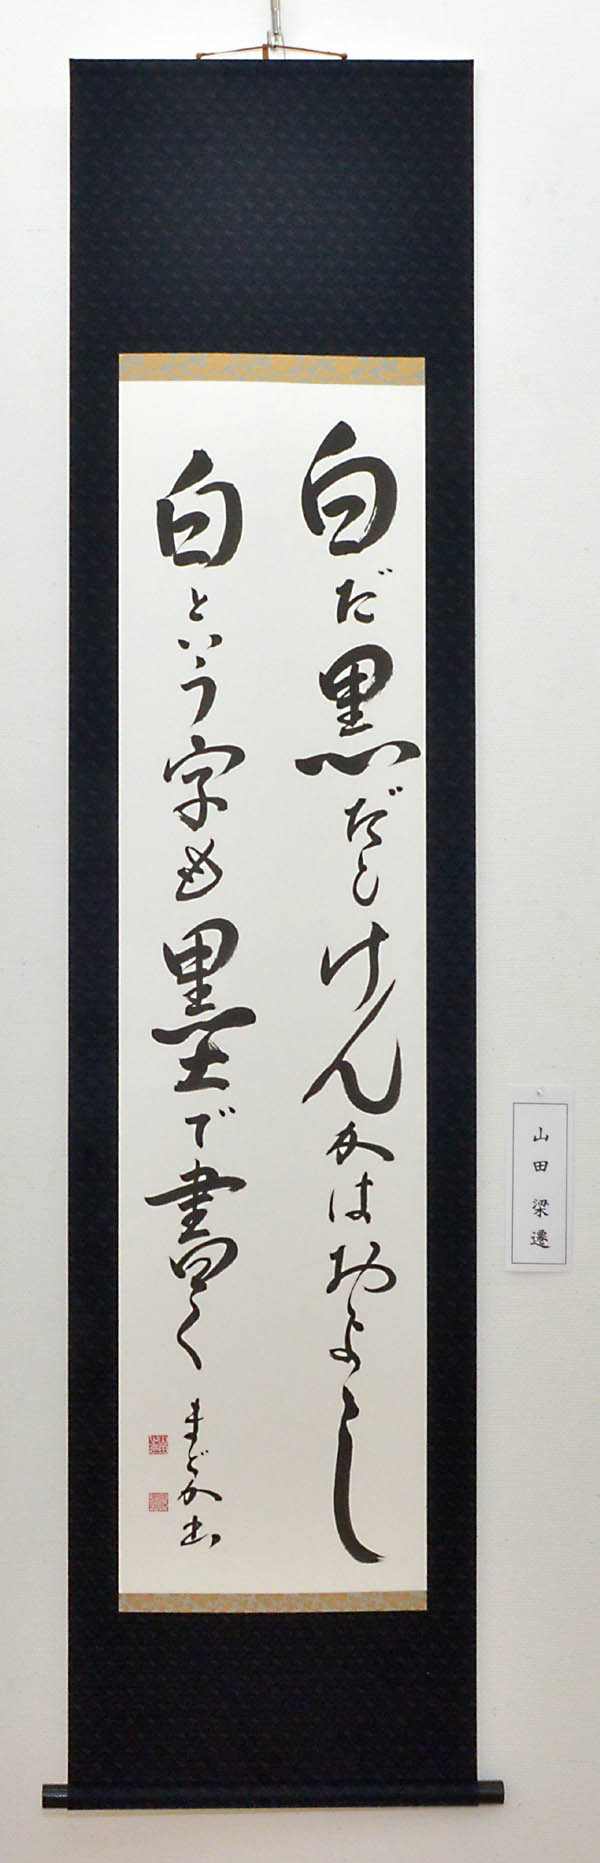 白だ黒だとけんかはおよし
白という字も墨で書く
まどか書
山田 梁邊